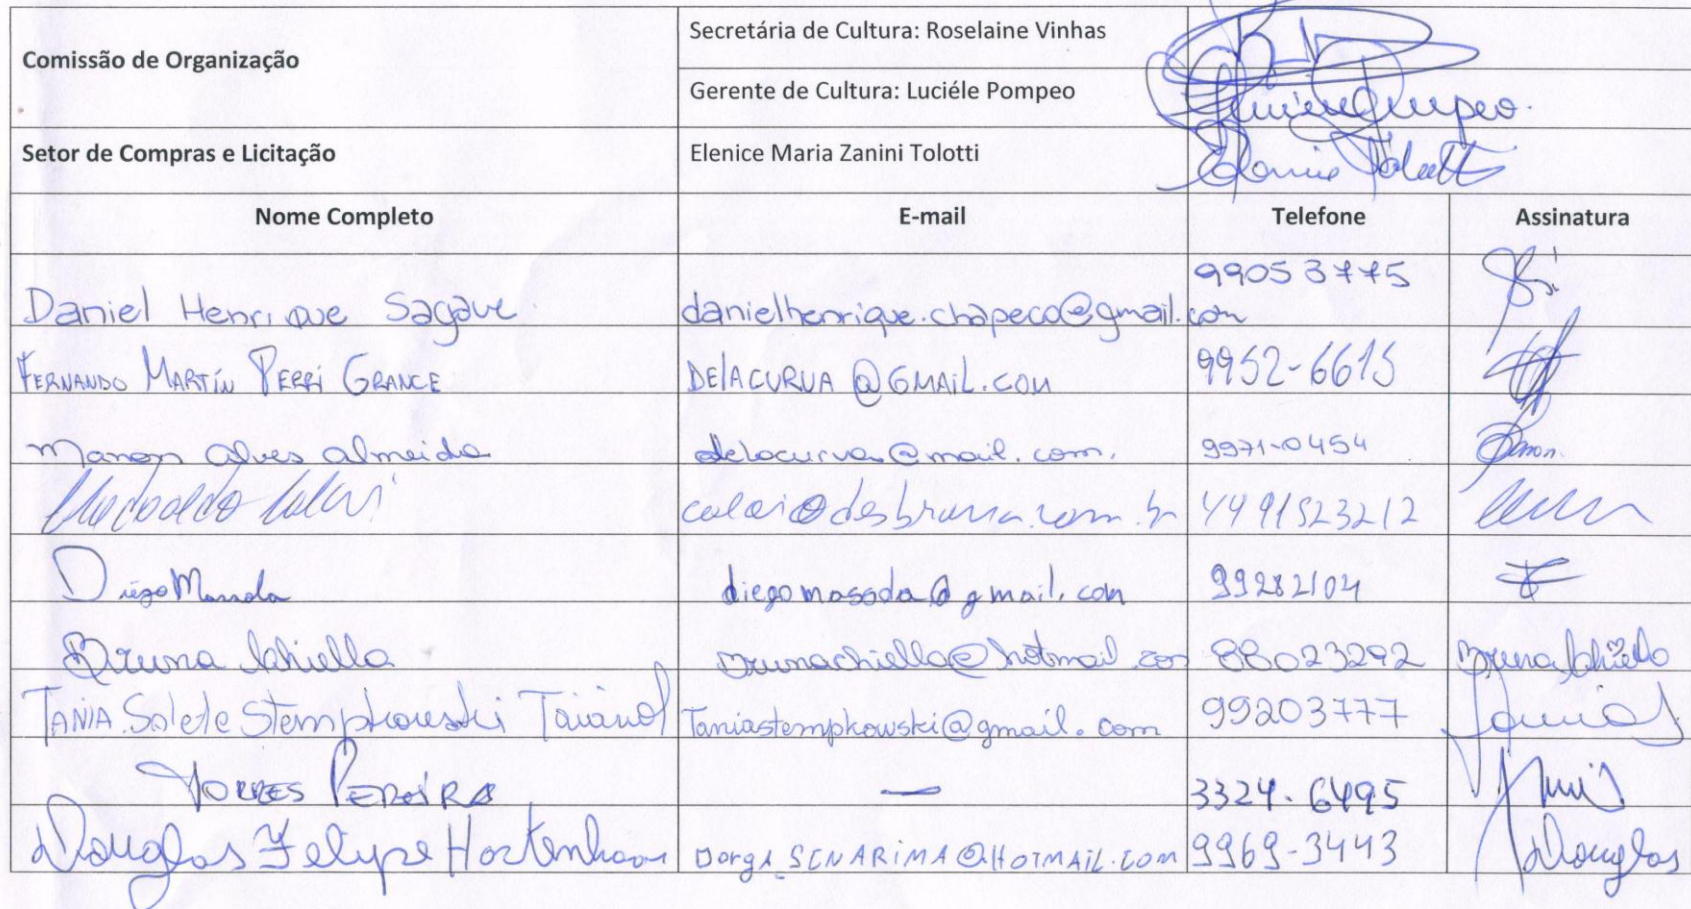 Comissão de Organização
Secretária de Cultura: Roselaine Vinhas
Gerente de Cultura: Luciéle Pompeo
Setor de Compras e Licitação Elenice Maria Zanini Tolotti
Nome Completo E-mail Telefone Assinatura
Daniel Henrique Sagave danielhenrique.chapeco@gmail.com 99053775
FERNANDO MARTÍN PERRI GRANCE DELACURVA@GMAIL.COM 9952-6615
Manon Alves Almeida delacurva@mail.com. 9971-0454
4491523212
Diego diegomassoda@gmail.com 99282104
Bruna Chiella brunachiella@hotmail.com 88023292 Bruna Chiella
TANIA Salete Stempkowski taniastempkowski@gmail.com 99203777
TORRES PEREIRA — 3324-6495
Douglas Felype 9969-3443 Douglas